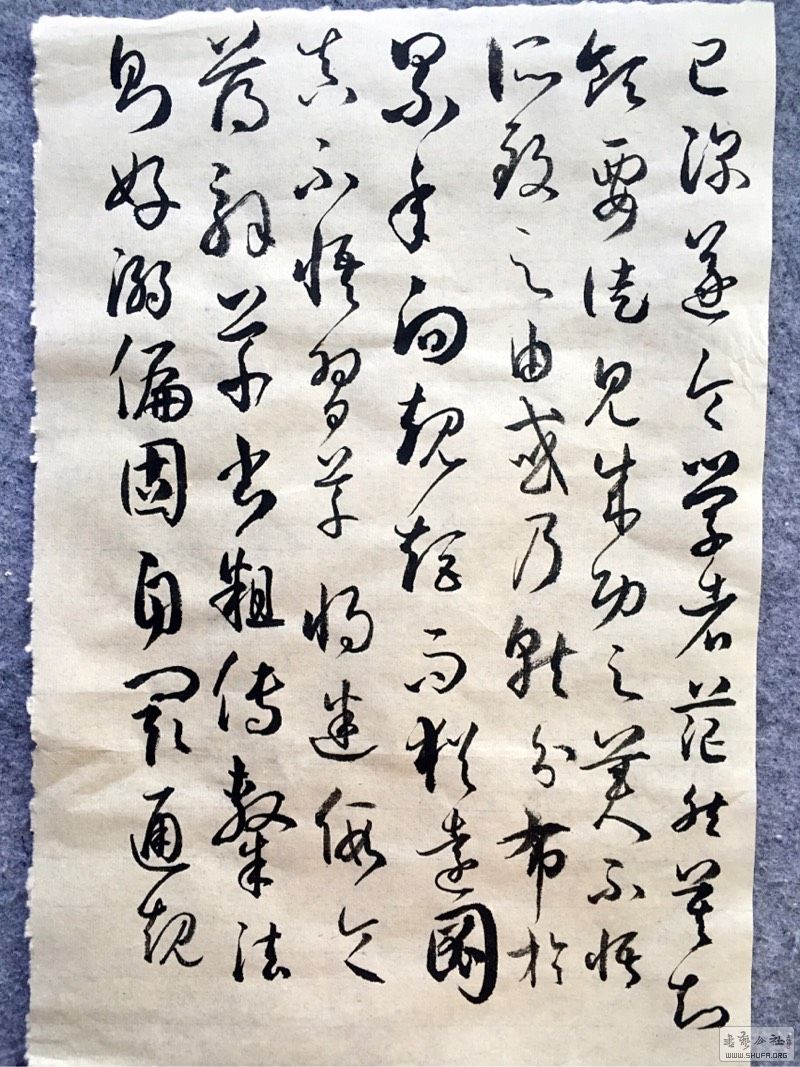 已深遂令學者茫然莫知
領要徒見成功之美不悟
所致之由或乃就分布於
累年向規矩而猶遠圖
真不悟習草將迷假令
薄解草書粗傳隸法
則好溺偏固自閡通規
書藝公社
WWW.SHUFA.ORG